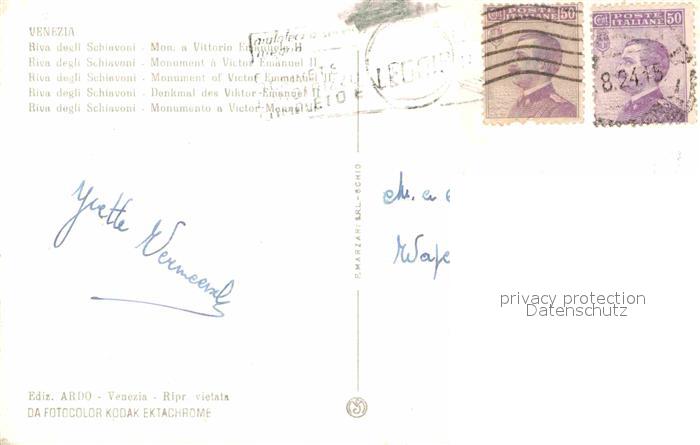 VENEZIA
Riva degli Schiavoni - Mon. a Vittorio Emanuele II
Riva degli Schiavoni - Monument à Victor Emanuel II
Riva degli Schiavoni - Monument of Victor Emmanuel II
Riva degli Schiavoni - Denkmal des Viktor-Emanuel II
Riva degli Schiavoni - Monumento a Victor Manuel II
POSTE ITALIANE 50
POSTE ITALIANE 50
8.24.15
Yvette
P. MARZARI S.R.L. - SCHIO
privacy protection
Datenschutz
Ediz. ARDO - Venezia - Ripr vietata
DA FOTOCOLOR KODAK EKTACHROME